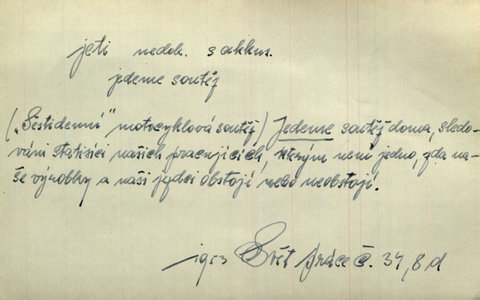 jeti nedok. s akkus.
jedeme soutěž
(„Šestidenní" motocyklová soutěž) Jedeme soutěž doma, sledo-
váni statisíci našich pracujících, kterým není jedno, zda na-
še výrobky a naši jezdci obstojí nebo neobstojí.
Svět práce č. 34, 8 d